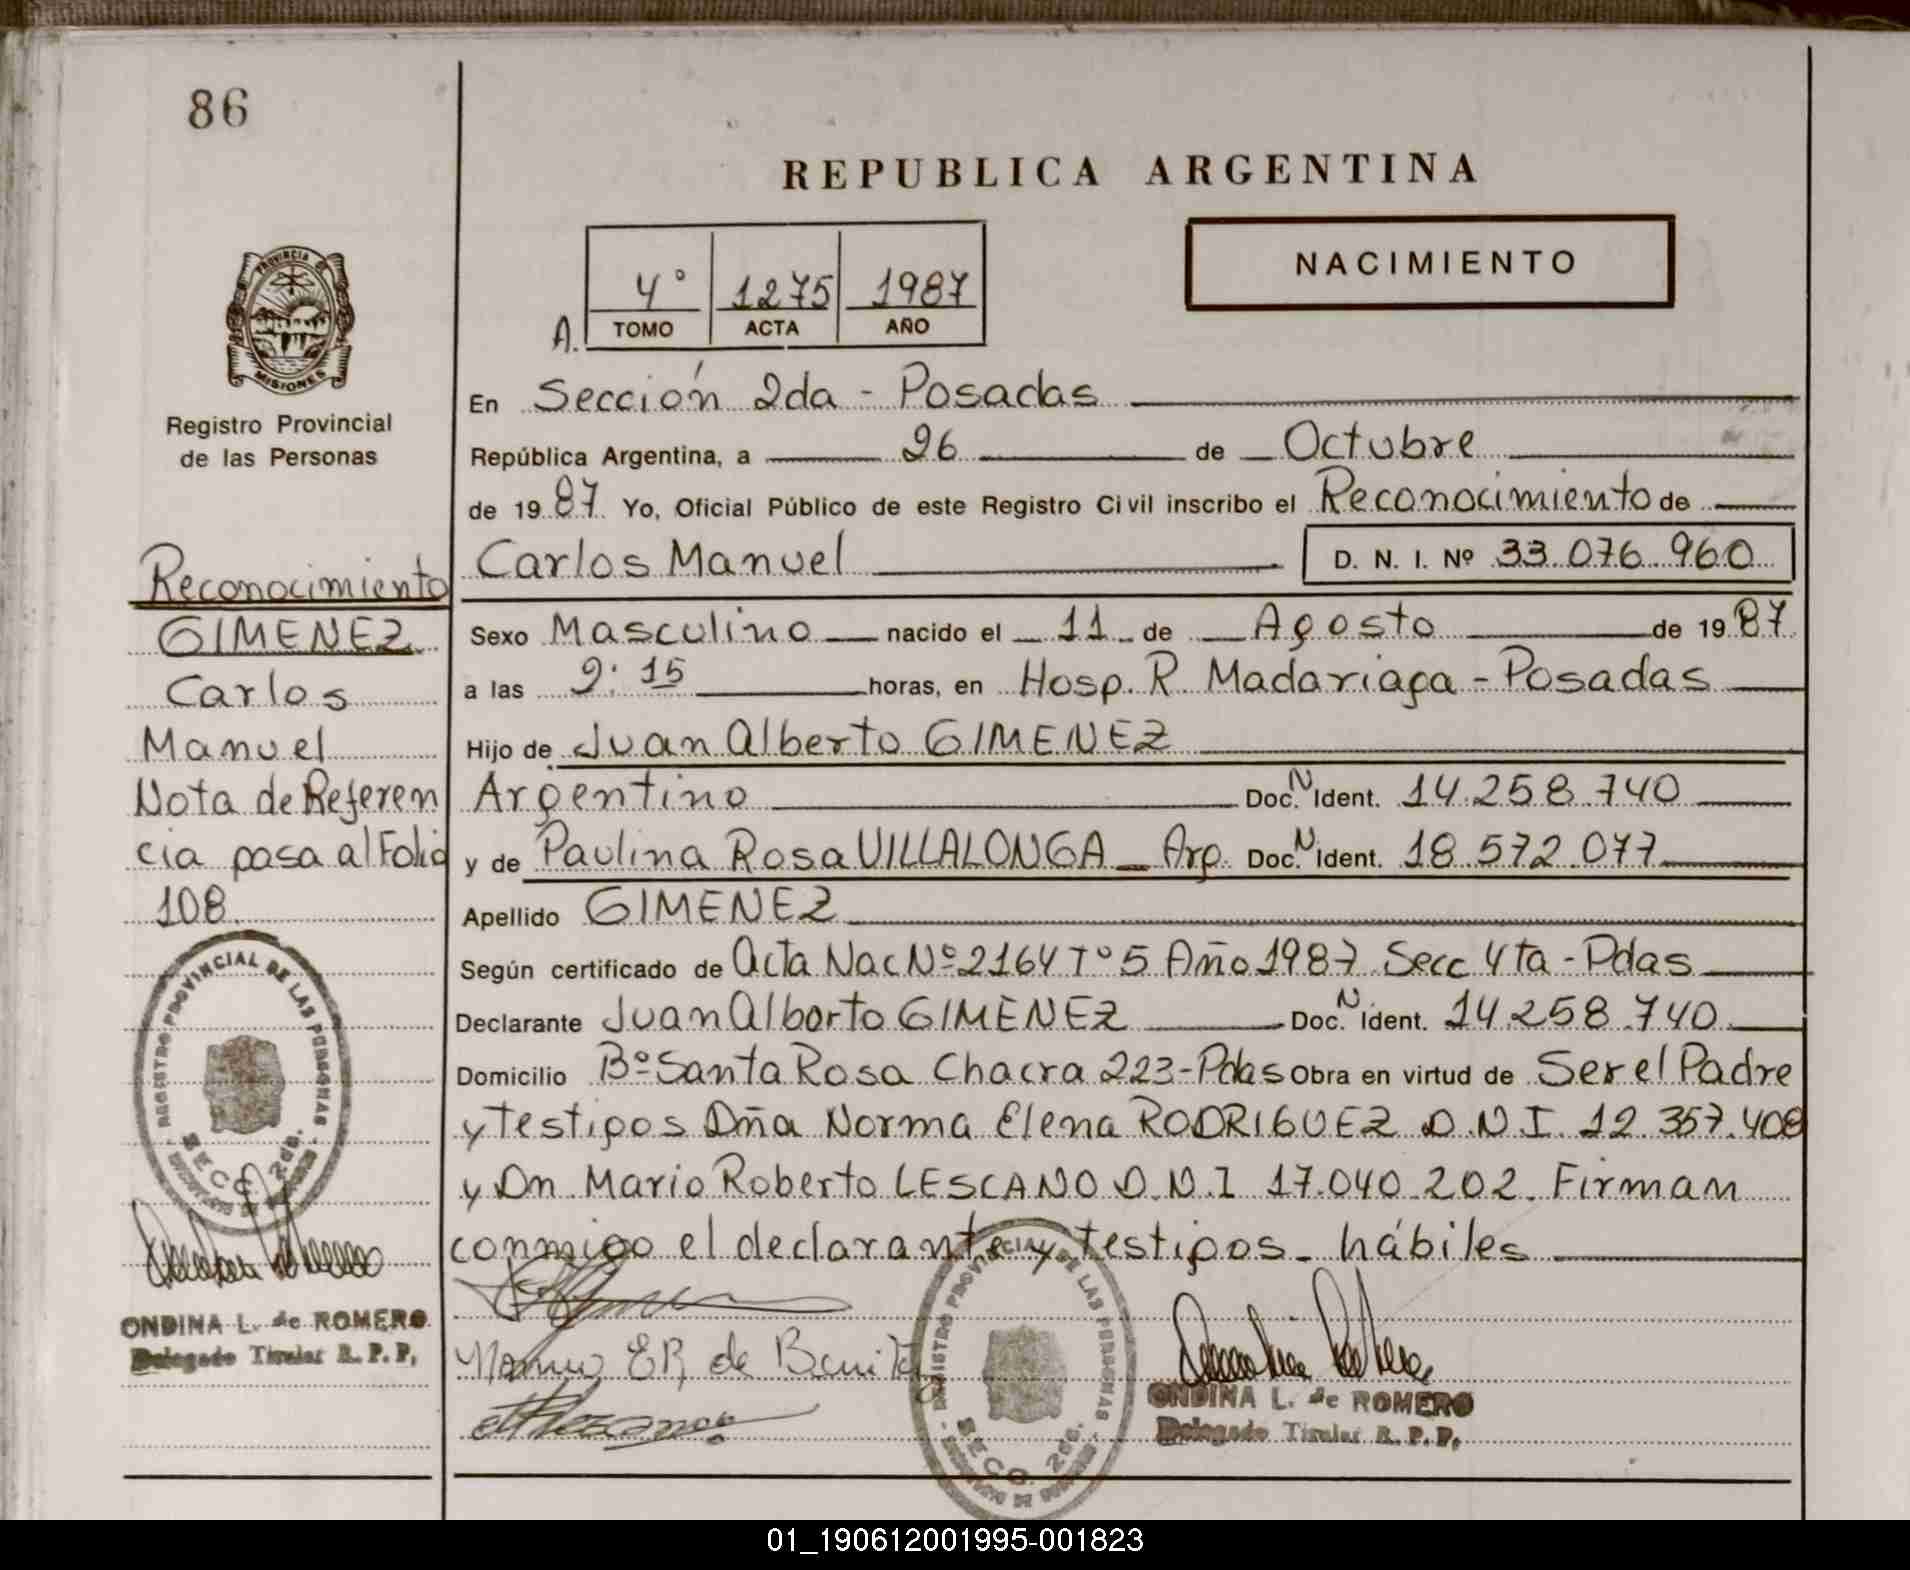 86
REPUBLICA ARGENTINA
NACIMIENTO
4° 1275 1987
A. TOMO ACTA AÑO
PROVINCIA DE
MISIONES
Registro Provincial
de las Personas
En Sección 2da - Posadas
República Argentina, a 26 de Octubre
de 1987 Yo, Oficial Público de este Registro Civil inscribo el Reconocimiento de
Carlos Manuel D. N. I. Nº 33.076.960
Sexo Masculino nacido el 11 de Agosto de 1987
a las 9:15 horas, en Hosp. R. Madariaga - Posadas
Hijo de Juan Alberto GIMENEZ
Argentino Doc. N Ident. 14.258.740
y de Paulina Rosa VILLALONGA Arg. Doc. N Ident. 18.572.077
Apellido GIMENEZ
Según certificado de Acta Nac Nº 2164 Tº 5 Año 1987 Secc 4ta - Pdas
Declarante Juan Alberto GIMENEZ Doc. N Ident. 14.258.740
Domicilio Bº Santa Rosa Chacra 223 - Pdas Obra en virtud de Ser el Padre
y testigos Dña Norma Elena RODRIGUEZ D.N.I. 12.357.408
y Dn. Mario Roberto LESCANO D.N.I 17.040.202. Firman
conmigo el declarante y testigos - hábiles
Reconocimiento
GIMENEZ
Carlos
Manuel
Nota de Referen
cia pasa al Folio
108
REGISTRO PROVINCIAL DE LAS PERSONAS
SECC. 2da.
ONDINA L. de ROMERO
Delegado Titular R. P. P.
Norma ER de Benitez
REGISTRO PROVINCIAL DE LAS PERSONAS
SECC. 2da.
ONDINA L. de ROMERO
Delegado Titular R. P. P.
01_190612001995-001823